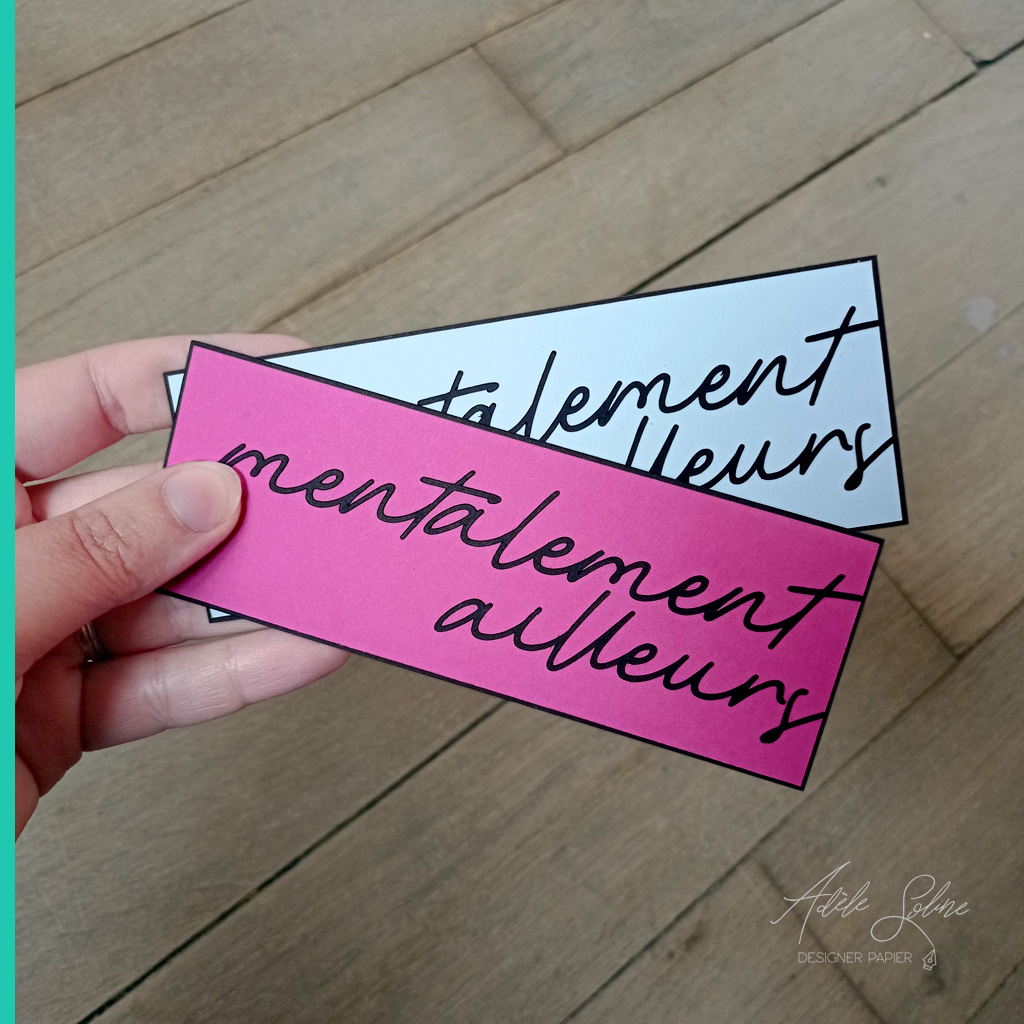 talement
lleurs
mentalement
ailleurs
Adèle Soline
DESIGNER PAPIER